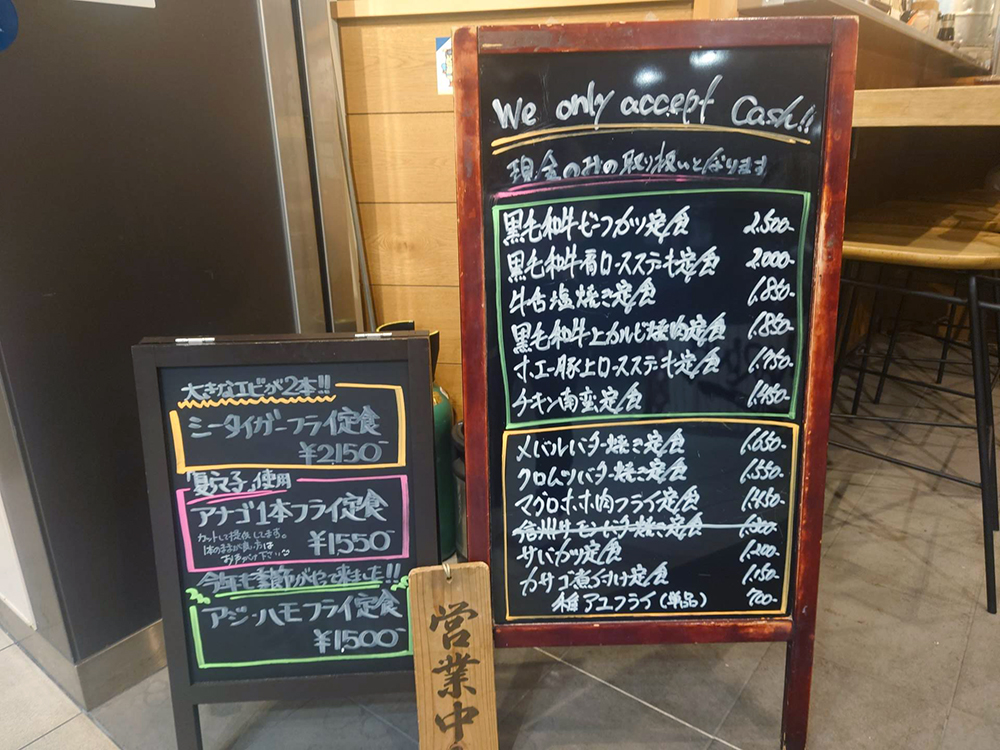 大きなエビが2本!!
シータイガーフライ定食
¥2150-
「夏穴子」使用
アナゴ1本フライ定食
カットして提供してます。
¥1550-
今年も季節がやって来ました!!
アジ・ハモフライ定食
¥1500-
営業中
We only accept Cash!!
現金のみの取り扱いとなります
黒毛和牛ビーフカツ定食 2.500-
黒毛和牛肩ロースステーキ定食 2.000-
牛舌塩焼き定食 1.850-
黒毛和牛上カルビ焼肉定食 1.850-
ホエー豚上ロースステーキ定食 1.750-
チキン南蛮定食 1.450-
メバルバター焼き定食 1.650-
クロムツバター焼き定食 1.550-
マグロホホ肉フライ定食 1.450-
信州サーモンバター焼き定食 1.300-
サバカツ定食 1.200-
カサゴ煮付け定食 1.150-
稚アユフライ(単品) 700-